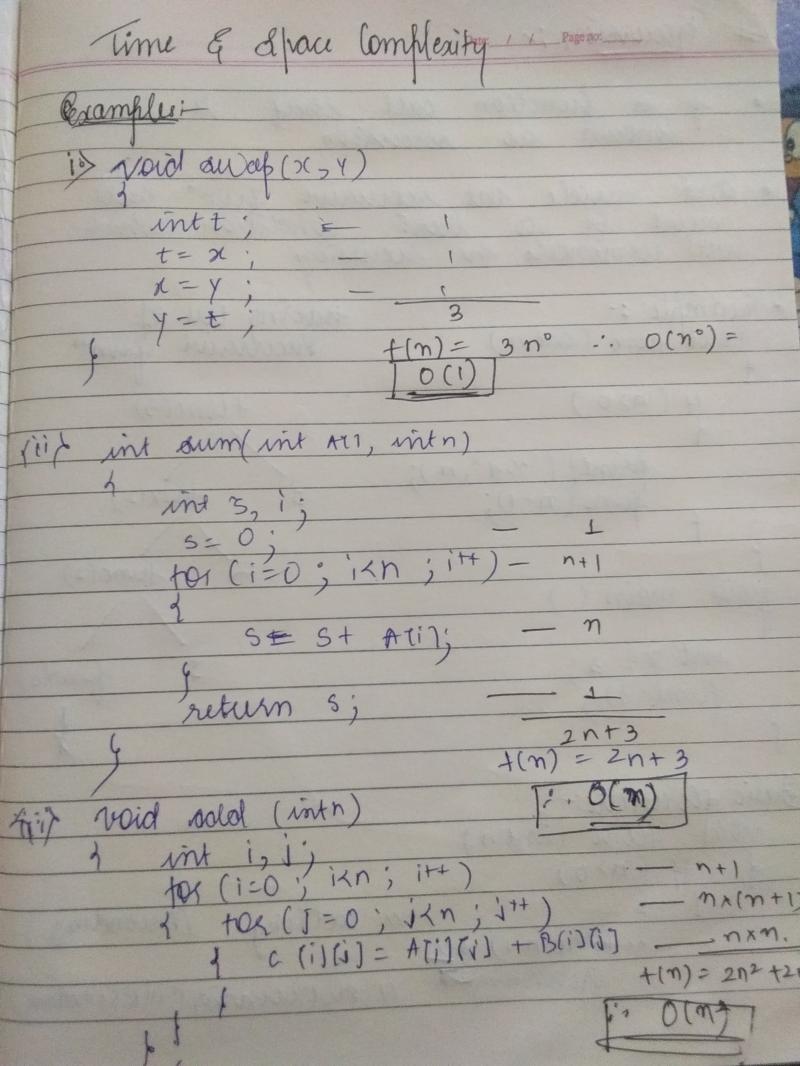 Time & Space Complexity
Date: / / Page no:
Examples:-
i) void swap(x, y)
{
int t ; — 1
t = x ; — 1
x = y ; — 1
y = t ; 3
} f(n) = 3n⁰ ∴ O(n⁰) =
O(1)
(ii) int sum(int A[], int n)
{
int s, i ;
s = 0 ; — 1
for (i=0 ; i<n ; i++) — n+1
{
s = s + A[i]; — n
}
return s; — 1
2n+3
} f(n) = 2n+3
∴ O(n)
(iii) void add (int n)
{ int i, j;
for (i=0 ; i<n ; i++) — n+1
{ for (j=0 ; j<n ; j++) — n×(n+1
{ c [i][j] = A[i][j] + B[i][j] — n×n.
f(n) = 2n²+2
}
}
}